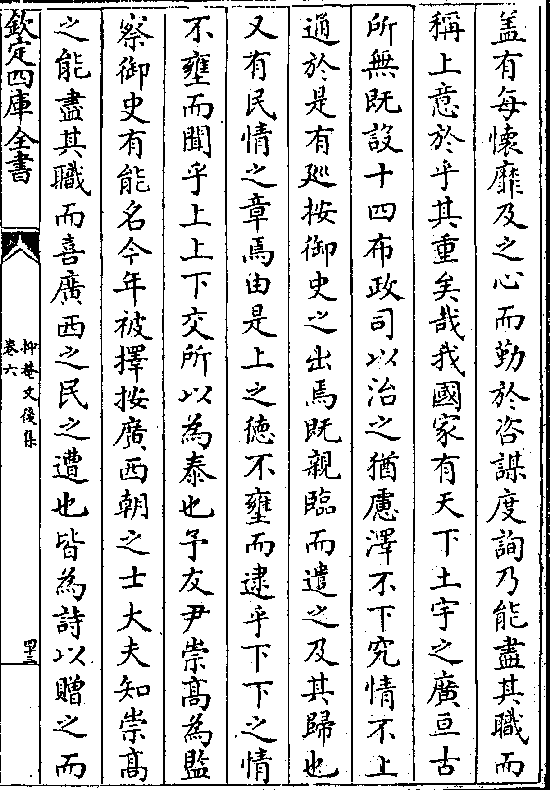 盖有每懷靡及之心而勤於咨謀度詢乃能盡其職而
稱上意於乎其重矣哉我國家有天下土宇之廣亘古
所無既設十四布政司以治之猶慮澤不下究情不上
通於是有廵按御史之出焉既親臨而遣之及其歸也
又有民情之章焉由是上之德不壅而逮乎下下之情
不壅而聞乎上上下交所以為泰也予友尹崇髙為監
察御史有能名今年被擇按廣西朝之士大夫知崇髙
之能盡其職而喜廣西之民之遭也皆為詩以贈之而
欽定四庫全書
抑菴文後集
卷六
四十三